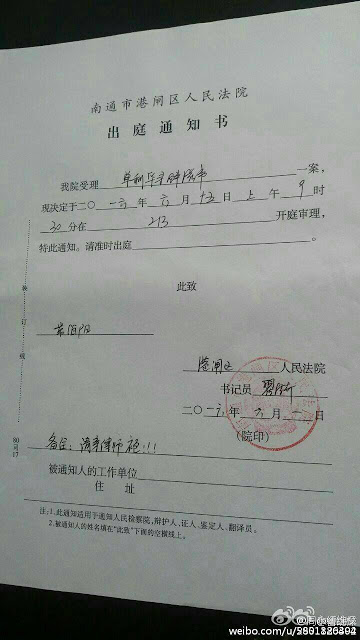 南通市港闸区人民法院
出庭通知书
我院受理 单利华寻衅滋事 一案,
现决定于二〇一六年六月十五日上午9时
30分在 213 开庭审理,
特此通知。请准时出庭 。
此致
装
订
线
港闸区人民法院
书记员
二〇一六年六月一日
(院印)
备注:请着律师袍!!!
被通知人的工作单位
住 址
注:1.此通知适用于通知人民检察院,辩护人、证人、鉴定人、翻译员。
2.被通知人的姓名填在“此致”下面的空横线上。